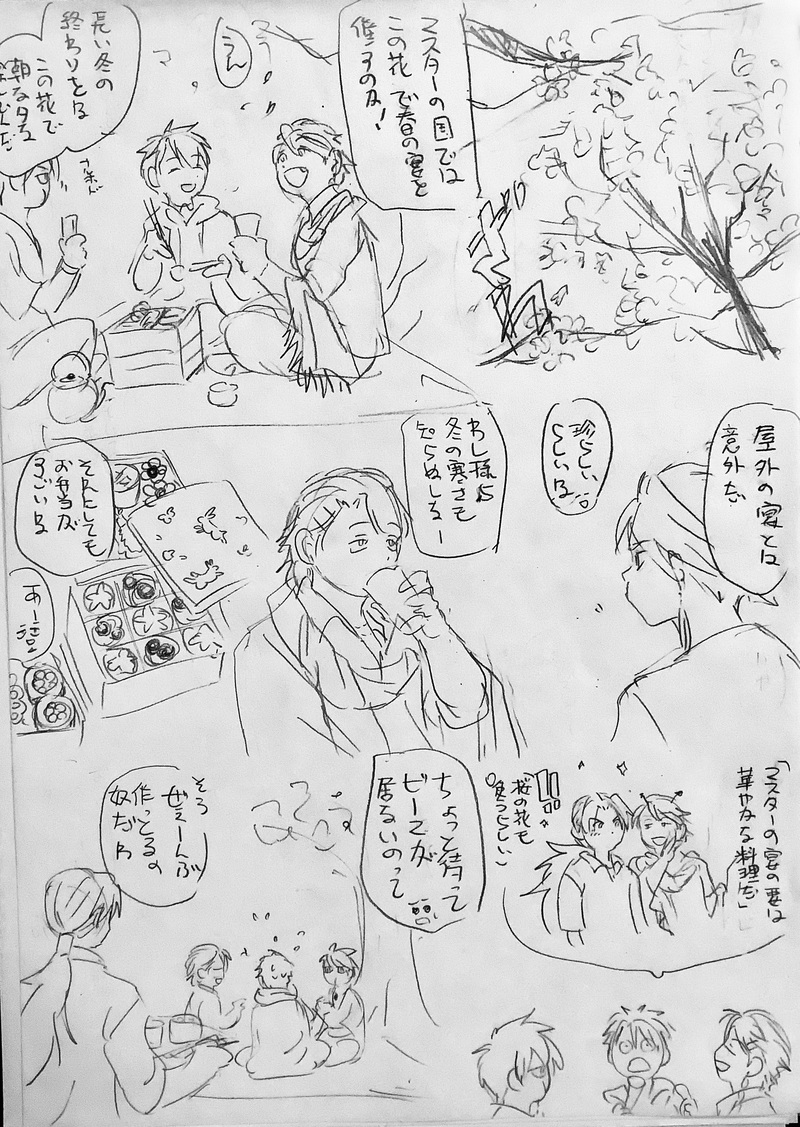 マスターの国では
この花で春の宴を
催すのな!
うん
長い冬の
終わりとな
この花で
ちょっと待って
ビーマが
居ないのって
屋外の宴とは
意外だ
珍らしい
らしいな
わし様は
冬の寒さも
知らぬしなー
それにしても
お弁当が
すごいな
あー……
「マスターの宴の要は
華やかな料理だ」
!!
桜の花も
食うらしい
そう
ぜぇーんぶ
作ってるの
奴だわ